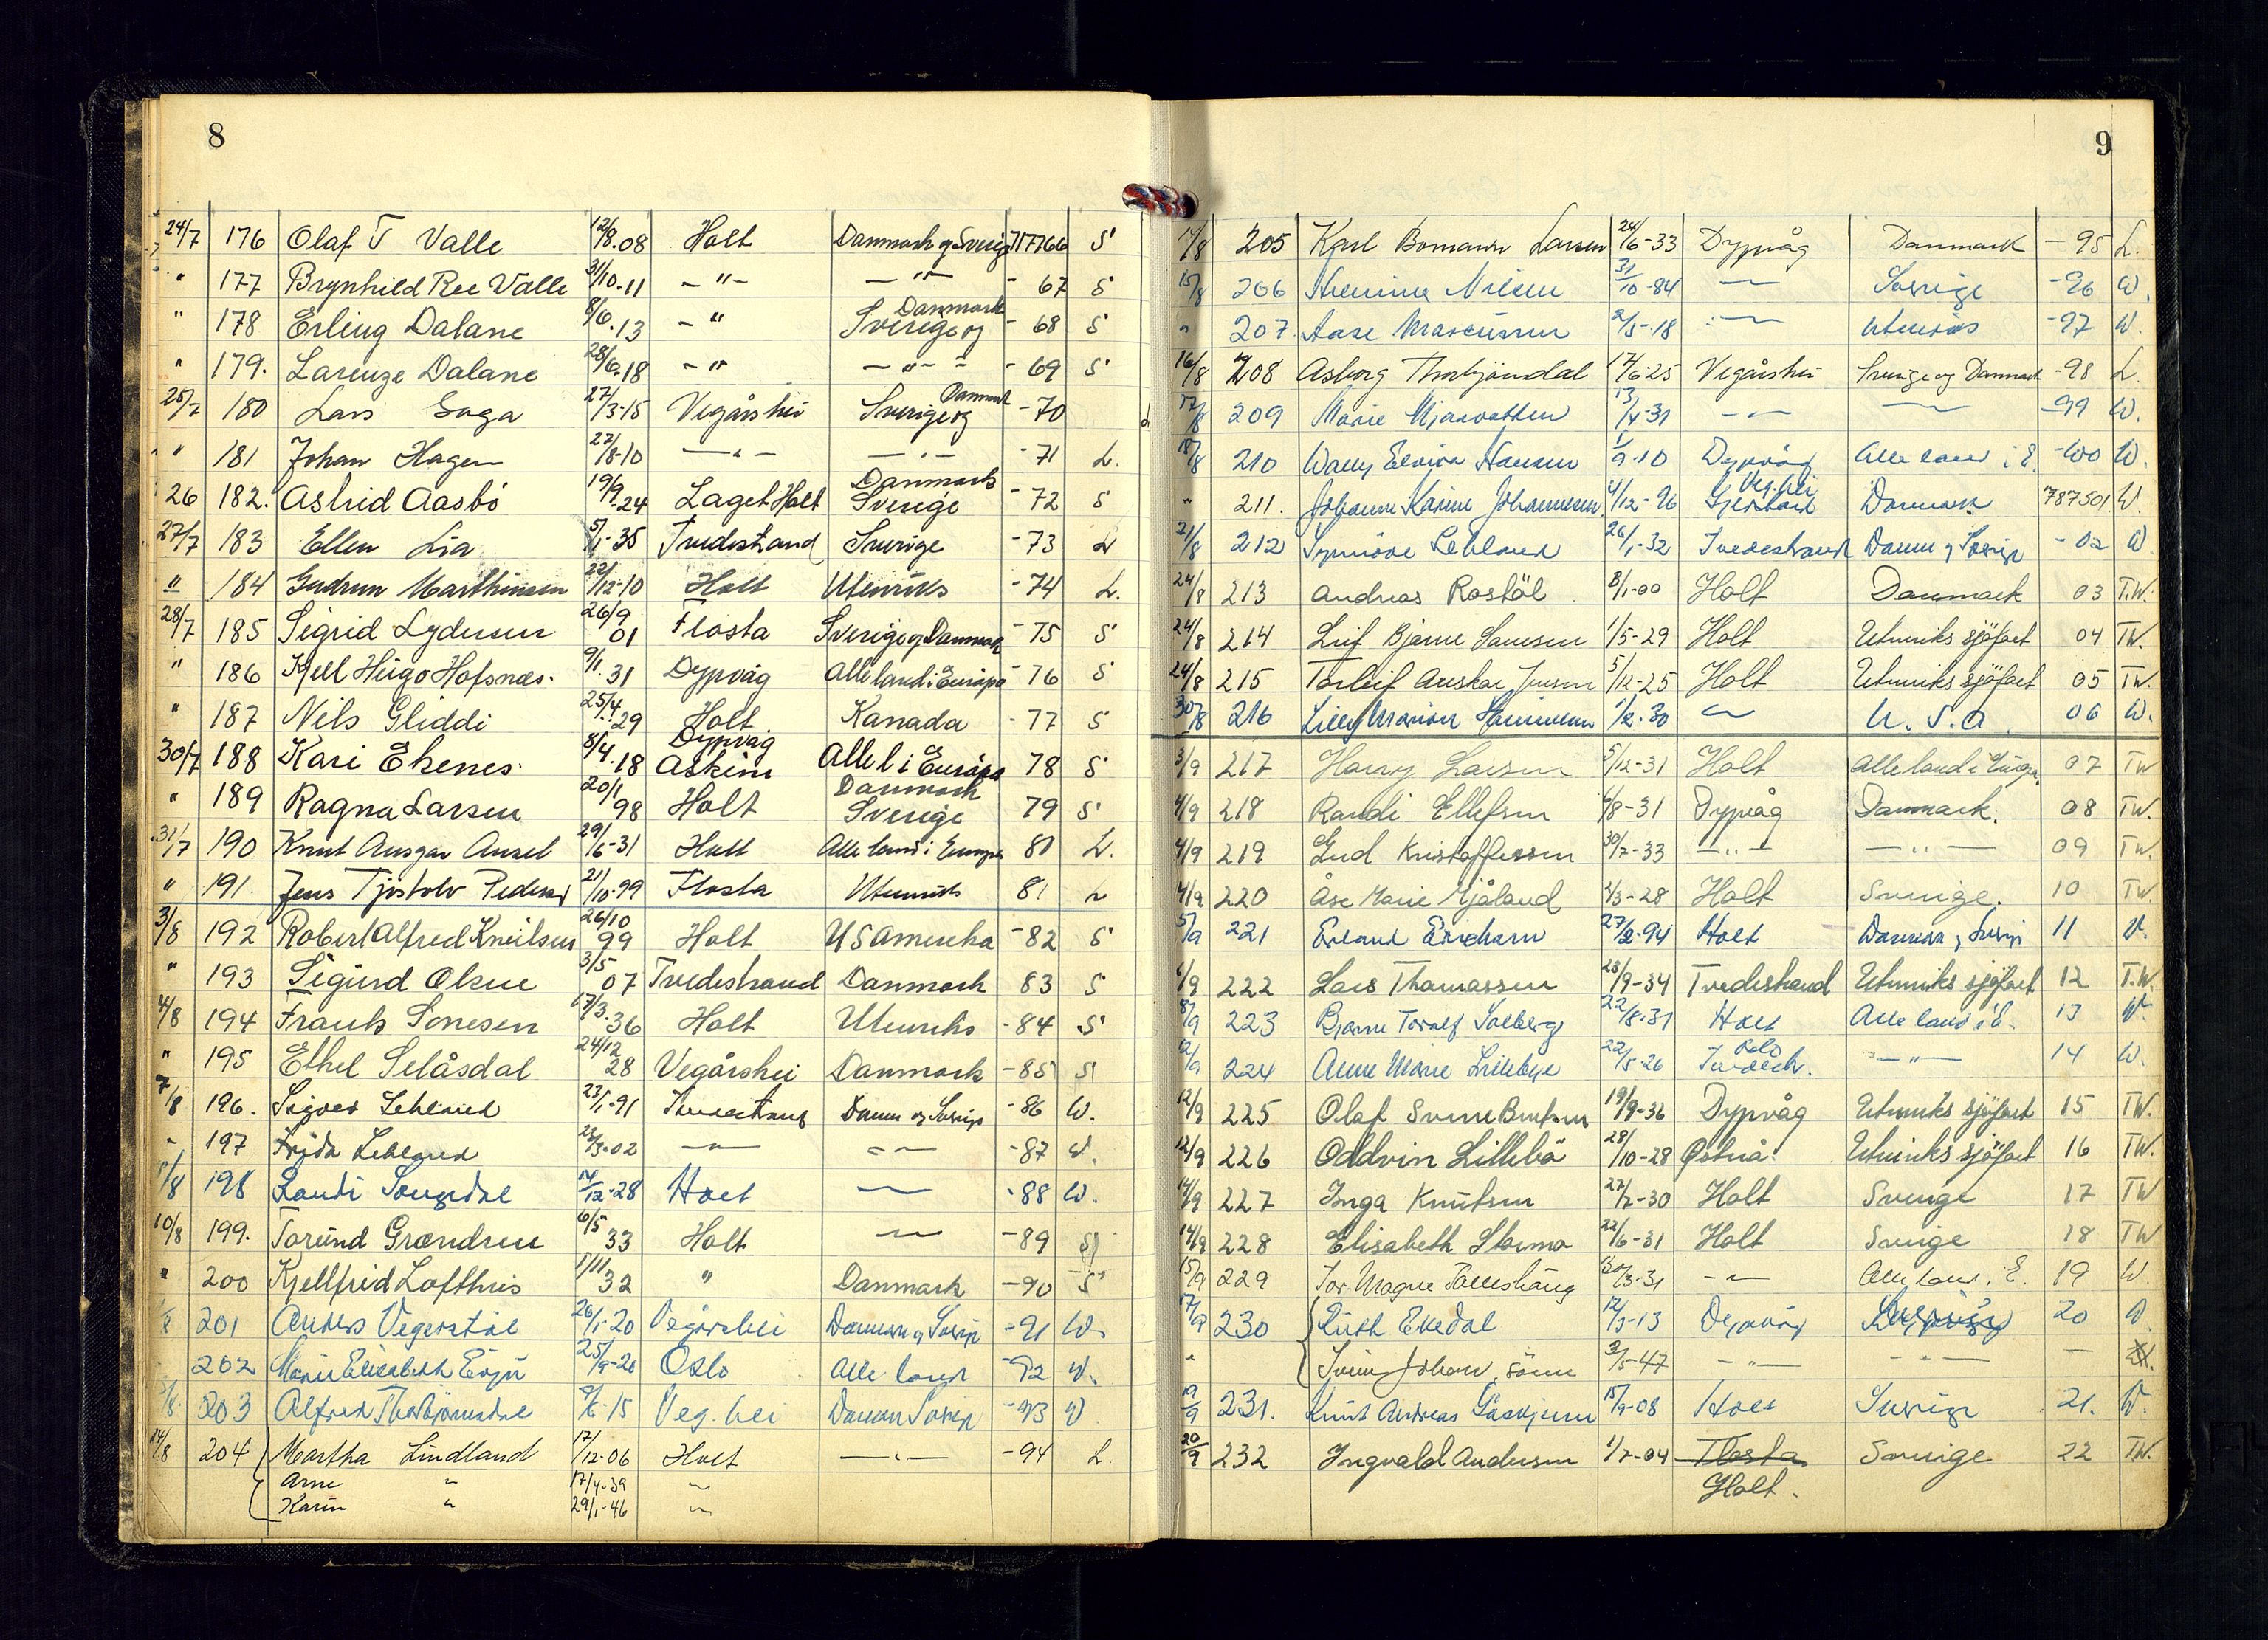 8
24/7 176 Olaf T Valle 12/8.08 Holt Danmark og Sverige 717766 S
" 177 Brynhild Ree Valle 31/10.11 - " - - " - - 67 S
" 178 Erling Dalane 8/6.13 - " Sverige og Danmark - 68 S
" 179. Larenze Dalane 28/6.18 - " - " - - 69 S
25/7 180 Lars Saga 27/3-15 Vegårshei Sverige og Danmark - 70
" 181 Johan Hagen 27/8-10 - " - - " - - 71 L.
26 182. Astrid Aasbö 19/9-24 Laget Holt Danmark Sverige - 72 S
27/7 183 Ellen Lia 5/1-35 Tvedestrand Sverige - 73 L
" 184 Gudrun Marthinsen 22/12-10 Holt Utenriks - 74 L.
28/7 185 Sigrid Lydersen 26/9 01 Flosta Sverige og Danmark - 75 S
" 186 Kjell Hugo Hofsnæs. 9/1.31 Dypvåg Alle land i Europa - 76 S
" 187 Nils Gliddi 25/4.29 Holt Kanada - 77 S
30/7 188 Kari Ekenes 8/4.18 Dypvåg Askim Alle l i Europa 78 S
" 189 Ragna Larsen 20/1 98 Holt Danmark Sverige 79 S
31/7 190 Knut Ansgar Ansel 29/6-31 Holt Alle land i Europa 80 L.
" 191. Jens Tjostolv Pedersen 21/10-99 Flosta Utenriks 81 L
3/8 192 Robert Alfred Knutsen 26/10 99 Holt U S Amerika - 82 S
" 193 Sigurd Olsen 3/5 07 Tvedestrand Danmark 83 S
4/8 194 Frank Sonesen 17/3.36 Holt Utenriks - 84 S
" 195 Ethel Selåsdal 24/12 28 Vegårshei Danmark - 85 S
7/8 196. Lebland 23/1-91 Tvedestrand Danm og Sverige - 86 W.
" 197 Frida Lebland 22/3-02 - " - - " - - 87 W.
8/8 198 Randi Songedal 14/12-28 Holt - " - - 88 W.
10/8 199. Torund Grændsen 6/5 33 Holt - " - - 89 S
" 200 Kjellfrid Lofthus 1/11 32 " Danmark - 90 S
201 Anders Vegerstøl 26/1-20 Vegårshei Danmark og Sverige - 91 W.
202 Marie Elisabeth 25/9-20 Oslo Alle land - 92 W.
203 Alfred Thorbjørnsdal 9/6-15 Veg.hei Danm Sverige - 93 W
14/8 204 Martha Lindland 17/12-06 Holt - " - - 94 L.
Arne " 17/4-39 "
Karin " 29/1-46 "
9
14/8 205 Karl Bomann Larsen 24/6-33 Dypvåg Danmark - 95 L.
15/8 206 Nilsen 31/10-84 - " - Sverige - 96 W.
" 207. Aase Marcussen 2/5-18 - " - Utenriks - 97 W.
16/8 208 Asborg Thorbjörndal 17/6-25 Vegårshei Sverige og Danmark - 98 L.
17/8 209 Marie Mjaavatten 13/4-31 - " - - " - - 99 W.
18/8 210 Wally Elvira Hansen 1/9-10 Dypvåg Alle land i E. - 00 W.
" 211. Johanne Karine Johannesen 4/12-96 Veg.hei Gjerstad Danmark 787501 W.
21/8 212 Synnöve Lebland 26/1-32 Tvedestrand Danm og Sverige - 02 W
24/8 213 Andreas Rostöl 8/1-00 Holt Danmark 03 T.W.
24/8 214 Leif Bjarne Sanesen 1/5-29 Holt Utenriks sjöfart 04 TW.
24/8 215 Torleif Jensen 5/12-25 Holt Utenriks sjöfart 05 TW.
30/8 216 Lilly Marion 1/2-30 - " - U.S.A. 06 W.
3/9 217 Harry Larsen 5/12-31 Holt Alle land i Europa. 07 TW
4/9 218 Randi Ellefsen 4/8-31 Dypvåg Danmark. 08 TW.
4/9 219 Gud Kristoffersen 30/7-33 - " - - " - 09 TW.
4/9 220 Åse Marie Mjåland 2/3-28 Holt Sverige. 10 TW.
5/9 221 Erland 27/2-94 Holt Danmark og Sverige 11 W.
6/9 222 Lars Thomassen 23/9-34 Tvedestrand Utenriks sjöfart 12 T.W.
8/9 223 Bjarne Toralf Solberg 22/8-31 Holt Alle land i E. 13 W.
12/9 224 Anne Marie Lillebye 22/5-26 Oslo Tvedestr. - " - 14 W.
12/9 225 Olaf Sverre Bentsen 19/9-36 Dypvåg Utenriks sjöfart 15 TW.
12/9 226 Oddvin Lillebö 28/10-28 Østraa Utenriks sjöfart 16 TW.
14/9 227 Inga Knutsen 27/7-30 Holt Sverige 17 TW
14/9 228 Elisabeth Stormo 22/6-31 Holt Sverige 18 TW
15/9 229 Tor Magne 30/3-31 - " - Alle land i E. 19 W.
17/9 230 Ruth Ekedal 12/3-13 Dypvåg Sverige 20 W
" Svein Johan, sönn 3/5-47 - " - - " - W.
19/9 231. Knut Andreas 15/9-08 Holt Sverige 21. W.
20/9 232 Ingvald Andersen 1/7-04 Flosta Sverige 22 TW.
Holt.